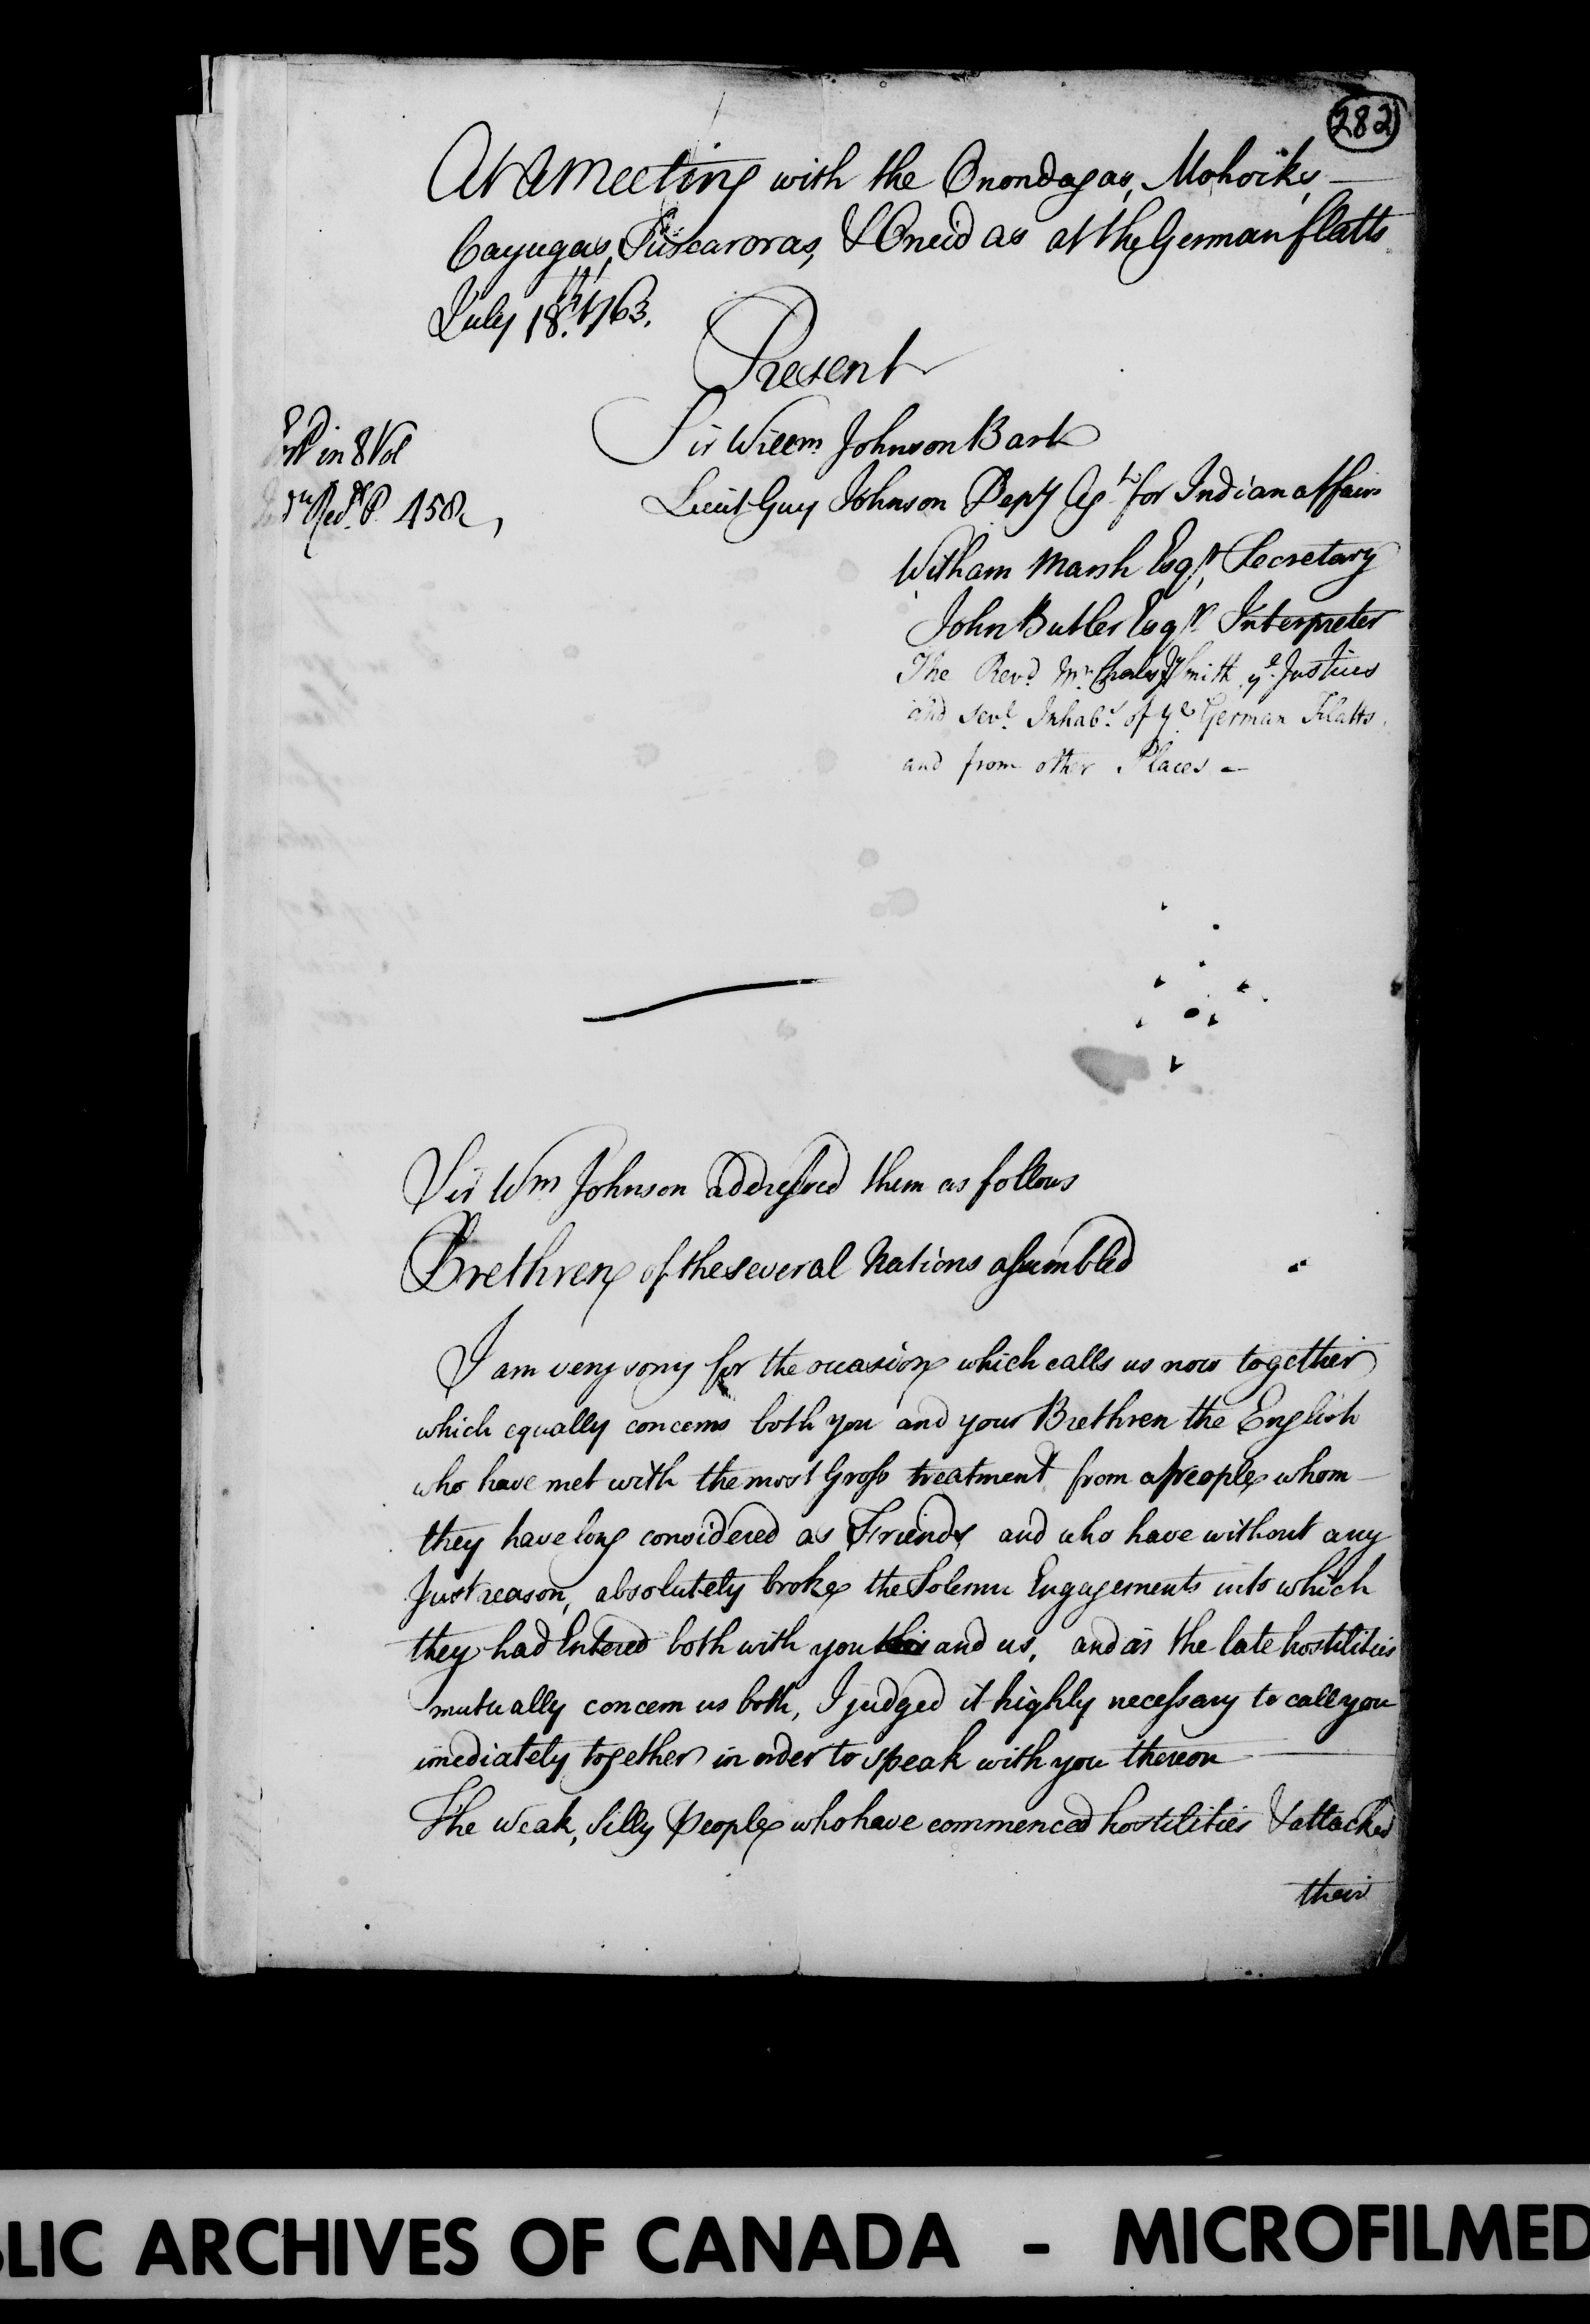 282
At a Meeting with the Onondagas, Mohocks,
Cayugas, Tuscaroras, & Oneidas at the German flatts
July 18th. 1763.
Present
Sir Willm. Johnson Bart
in 8 Vol
Lieut Guy Johnson Depy Agt. for Indian affairs
Recds. P. 458.
Witham Marsh Esqr, Secretary
John Butler Esqr. Interpreter
The Revd. Mr. Smith ye. Justices
and sevl. Inhabs. of ye. German Flatts.
and from other Places -
Sir Wm Johnson addressed them as follows
Brethren of the several Nations assembled
I am very sorry for the occasion which calls us now together
which equally concerns both you and your Brethren the English
who have met with the most Gross treatment from a people whom
they have long considered as Friends and who have without any
Just reason, absolutely broke the Solemn Engagements into which
they had Entered both with you and us, and as the late hostilities
mutually concern us both, I judged it highly necessary to call you
imediately together in order to speak with you thereon
The Weak, Silly People who have commenced hostilities & attacked
their
LIC ARCHIVES OF CANADA - MICROFILMED